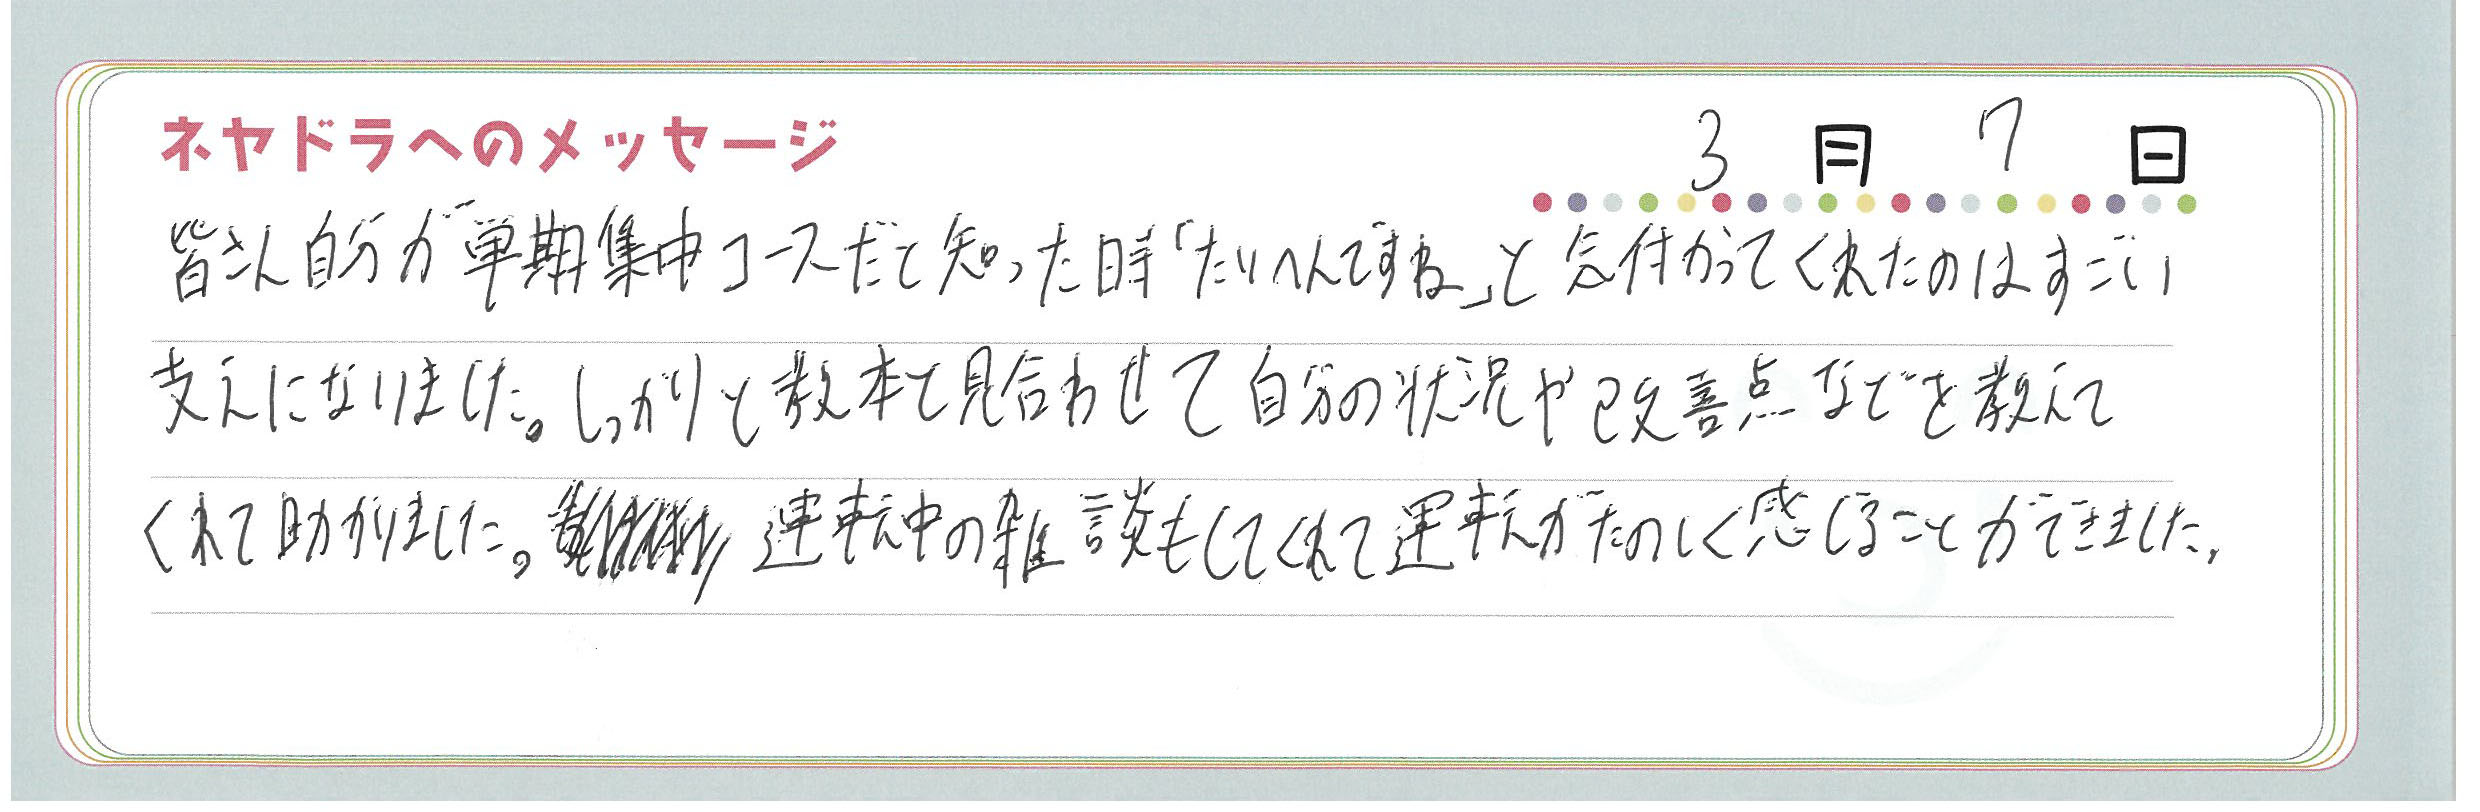 ネヤドラへのメッセージ
3月7日
皆さん自分が単期集中コースだと知った時「たいへんですね」と気付かってくれたのはすごい
支えになりました。しっかりと教本と見合わせて自分の状況や改善点などを教えて
くれて助かりました。運転中の雑談もしてくれて運転がたのしく感じることができました。